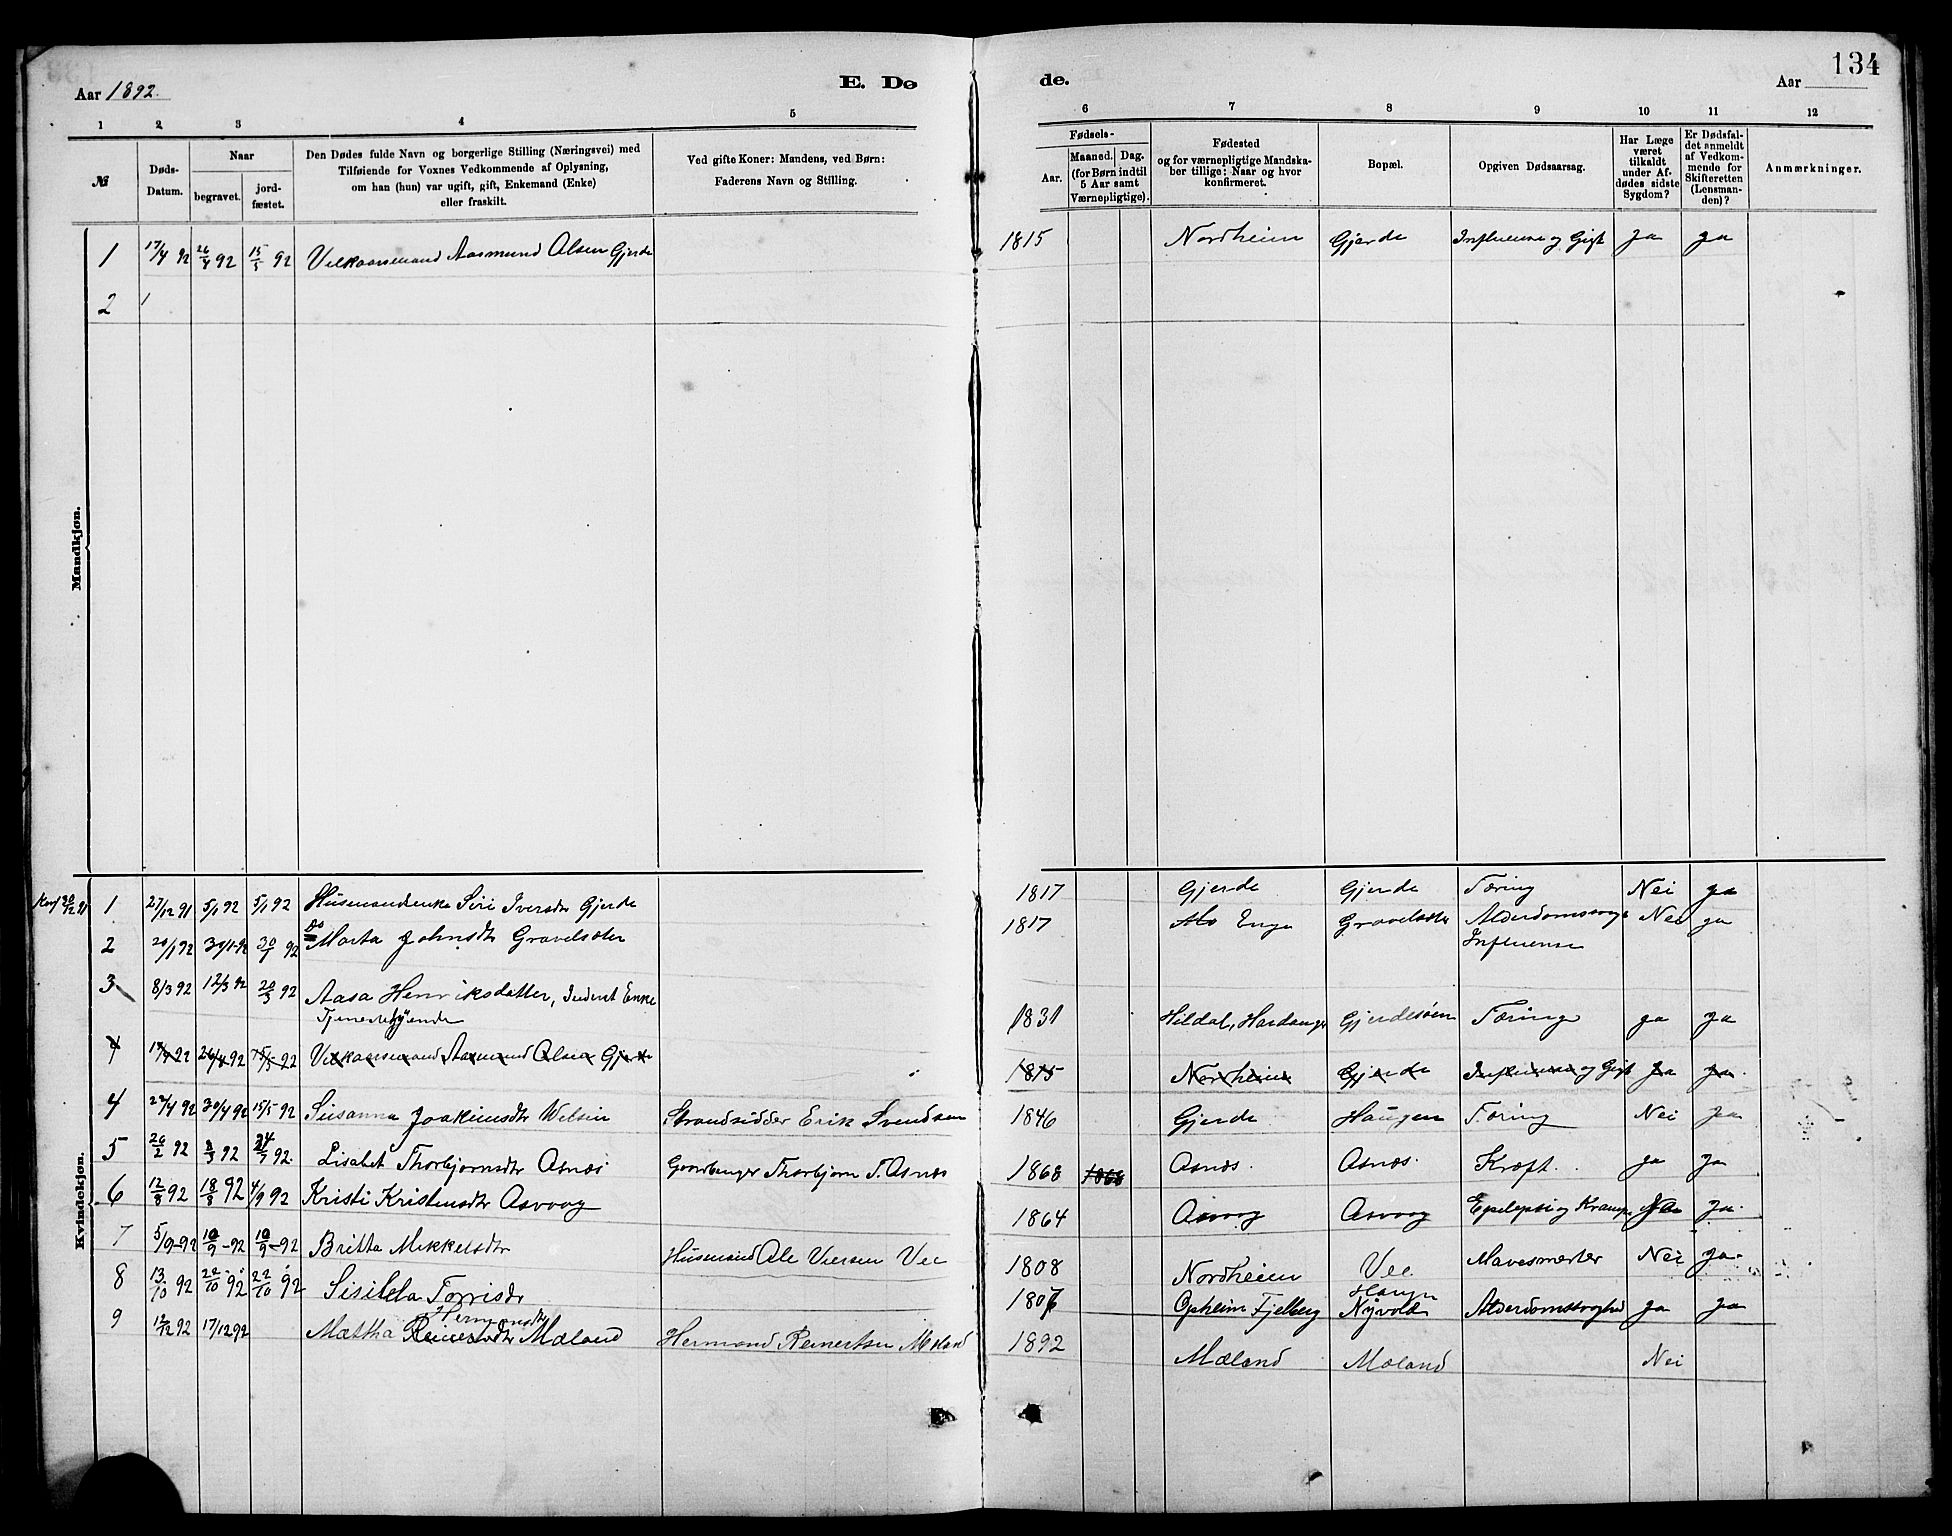 134
Aar 1892.
E. Dø
de.
Aar
1 2 3 4 5 6 7 8 9 10 11 12
№
Døds-
Datum.
Naar
begravet.
jord-
fæstet.
Den Dødes fulde Navn og borgerlige Stilling (Næringsvei) med
Tilføiende for Voxnes Vedkommende af Oplysning,
om han (hun) var ugift, gift, Enkemand (Enke)
eller fraskilt.
Ved gifte Koner: Mandens, ved Børn:
Faderens Navn og Stilling.
Fødsels-
Aar.
Maaned. Dag.
(for Børn indtil
5 Aar samt
Værnepligtige).
Fødested
og for værnepligtige Mandska-
ber tillige: Naar og hvor
konfirmeret.
Bopæl.
Opgiven Dødsaarsag.
Har Læge
været
tilkaldt
under Af-
dødes sidste
Sygdom?
Er Dødsfal-
det anmeldt
af Vedkom-
mende for
Skifteretten
(Lensman-
den)?
Anmærkninger.
Mandkjøn.
1 17/4 92 26/4 92 15/5 92 Velkaarsmand Aasmund Olsen Gjerde 1815 Nordheim Gjerde Influensa og Gigt Ja ja
2
Kvindekjøn.
1 27/12 91 5/1 92 5/1 92 Husmandsenke Siri Iversdtr Gjerde 1817 Gjerde Gjerde Tæring Nei ja
2 20/1 92 30/1-92 30/1 92 Do Marta Johnsdtr Gravelsæter 1817 Enge Gravelsæter Alderdomssvage Nei ja
Influensa
3 8/3 92 12/3 92 20/3 92 Aasa Henriksdatter, Inderst Enke
Tjenestegjørende 1831 Hildal, Hardanger Gjerdesøen Tæring ja ja
4 17/4 92 26/4 92 15/5-92 Velkaarsmand Aasmund Olsen Gjerde 1815 Nordheim Gjerde Influensa og Gigt Ja ja.
4 27/4 92 30/4 92 15/5 92 Susanna Joakimsdtr Strandsidder Erik Svendsen 1846 Gjerde Haugen Tæring Nei Ja
5 26/2 92 3/3 92 24/7 92. Lisabet Thorbjørnsdtr Asnæs Gaardbruger Thorbjørn T. Asnæs 1868 1868 Asnæs. Asnæs. Kræft. ja ja
6 12/8 92 18/8 92 4/9 92 Kristi Kristensdtr Asvaag 1864 Asvaag Asvaag Epilepsi og Krampe Ja.
7 5/9-92 10/9-92 10/9-92 Britta Mikkelsdtr Husmand Ole Vee 1808 Nordheim Vee Mavesmerter Nei ja.
8 13/10 92 22/10 92 22/10 92 Sisilda Torrisdr 1807 Opheim Fjelberg Haugen
Nyvold Alderdomssvaghed ja ja
9 12/12 92 17/12 92 Mættha Hermansdtr Mæland Hermand Reinertsen Mæland 1892 Mæland Mæland Nei